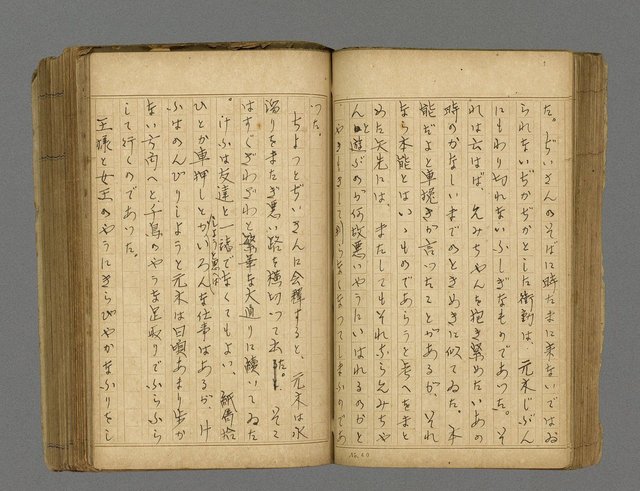 た。ぢいさんのそばに時たまに来ないではゐ
られないぢかぢかとした衝動は、元木じぶん
にもわり切れないふしぎなものであつた。そ
れは云はば、久みちやんを抱き緊めたいあの
時のかなしいまでのときめきに似てゐた。本
能だよと車挽きが言つたことがあるが、それ
なら本能とはいいものであらうと考へをまと
めた矢先には、またしてもそれなら久みちや
んと遊ぶのが何故悪いやうにいはれるのかと
なつてしまふのであ
つた。
ちよつとぢいさんに会釋すると、元木は水
溜りをまたぎ悪い路を横切つて出た。そこ
はすぐざわざわと繁華な大通りに續いてゐた
。けふは友達と一緒でなくてもよい、紙屑拾
ひとか車押しとかいろんな仕事はあるが、け
ふはのんびりしようと元木は日頃あまり歩か
ない方角へと、千鳥のやうな足取りでぶらぶら
して行くのであつた。
王様と女王のやうにきらびやかななりをし
No.40